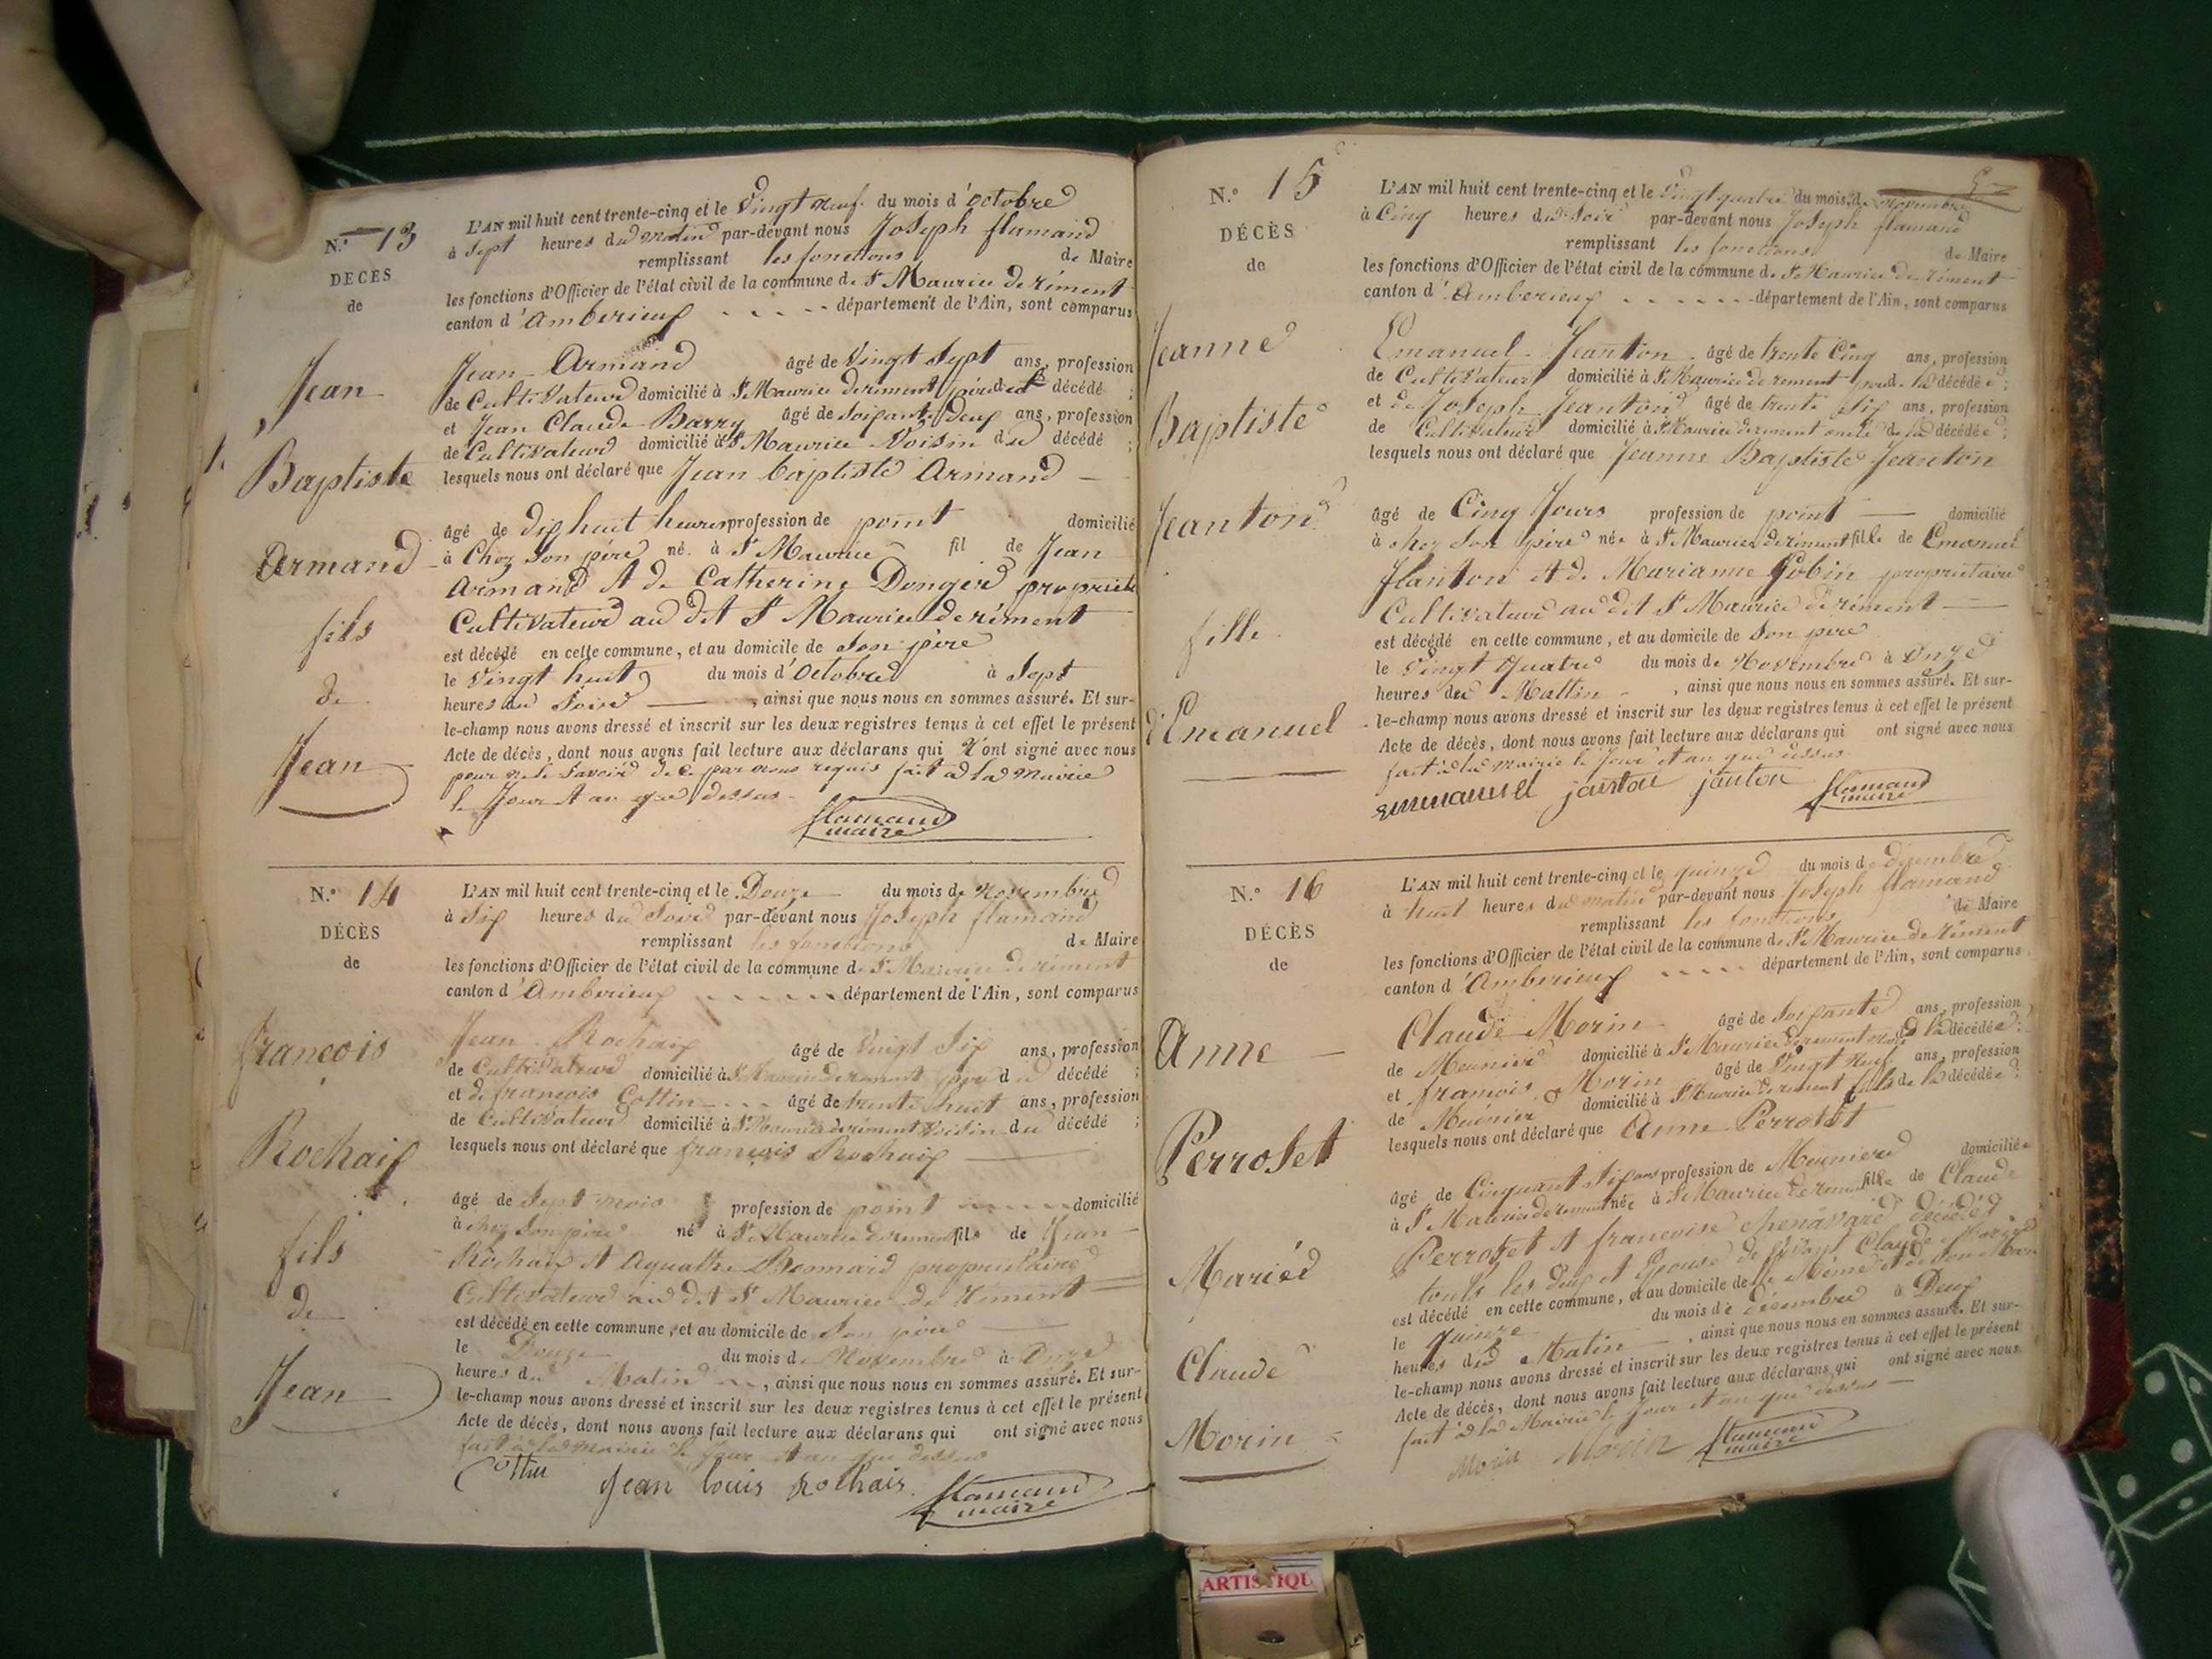 N.° 13
DÉCÈS
de
Jean
Baptiste
Armand
fils
de
Jean
L'AN mil huit cent trente-cinq et le Vingt neuf du mois d'octobre
à Sept heures du matin par-devant nous Joseph flamand
remplissant les fonctions de Maire
les fonctions d'Officier de l'état civil de la commune de St Maurice de rément
canton d'Amberieux département de l'Ain, sont comparus
Jean Armand âgé de Vingt Sept ans, profession
de Cultivateur domicilié à St Maurice de rément père du décédé ;
et Jean Claude Barry âgé de Soixante Deux ans, profession
de Cultivateur domicilié à St Maurice Voisin du décédé ;
lesquels nous ont déclaré que Jean baptiste Armand
âgé de dix huit heures profession de point domicilié
à Chez Son père né à St Maurice fil de Jean
Armand et de Catherine Donger
Cultivateur au dit St Maurice de rément
est décédé en cette commune, et au domicile de Son père
le Vingt huit du mois d'octobre à Sept
heures du Soir, ainsi que nous nous en sommes assuré. Et sur-
le-champ nous avons dressé et inscrit sur les deux registres tenus à cet effet le présent
Acte de décès, dont nous avons fait lecture aux déclarans qui n'ont signé avec nous
pour ne le Savoir de ce par nous requis fait à la mairie
le Jour et an que dessus
flamand
maire
N.° 14
DÉCÈS
de
francois
Rochaix
fils
de
Jean
L'AN mil huit cent trente-cinq et le Douze du mois de novembre
à Six heures du Soir par-devant nous Joseph flamand
remplissant les fonctions de Maire
les fonctions d'Officier de l'état civil de la commune de St Maurice de rément
canton d'Amberieux département de l'Ain, sont comparus
Jean Rochaix âgé de Vingt Six ans, profession
de Cultivateur domicilié à St Maurice de rément père du décédé ;
et de francois Cottin âgé de trente huit ans, profession
de Cultivateur domicilié à St Maurice de rément Voisin du décédé ;
lesquels nous ont déclaré que francois Rochaix
âgé de Sept mois profession de point domicilié
à chez Son père né à St Maurice de rément fils de Jean
Rochaix et Aguathe propriétaire
Cultivateur au dit St Maurice de rément
est décédé en cette commune, et au domicile de Son père
le Douze du mois de Novembre à Onze
heures du Matin, ainsi que nous nous en sommes assuré. Et sur-
le-champ nous avons dressé et inscrit sur les deux registres tenus à cet effet le présent
Acte de décès, dont nous avons fait lecture aux déclarans qui ont signé avec nous
fait à la mairie le Jour et an que dessus
Jean louis Rochaix
flamand
maire
N.° 15
DÉCÈS
de
Jeanne
Baptiste
Jeanton
fille
d'Emanuel
L'AN mil huit cent trente-cinq et le Vingt quatre du mois de novembre
à Cinq heures du Soir par-devant nous Joseph flamand
remplissant les fonctions de Maire
les fonctions d'Officier de l'état civil de la commune de St Maurice de rément
canton d'Amberieux département de l'Ain, sont comparus
Emanuel Jeanton âgé de trente Cinq ans, profession
de Cultivateur domicilié à St Maurice de rement père de la décédée ;
et de Joseph Jeanton âgé de trente Six ans, profession
de Cultivateur domicilié à St Maurice de rement oncle de la décédée ;
lesquels nous ont déclaré que Jeanne Baptiste Jeanton
âgé de Cinq Jours profession de point domicilié
à chez Son père née à St Maurice de rément fille de Emanuel
Jeanton et de Marianne Gobin propriétaire
Cultivateur au dit St Maurice de rément
est décédé en cette commune, et au domicile de Son père
le Vingt Quatre du mois de Novembre à Onze
heures du Mattin, ainsi que nous nous en sommes assuré. Et sur-
le-champ nous avons dressé et inscrit sur les deux registres tenus à cet effet le présent
Acte de décès, dont nous avons fait lecture aux déclarans qui ont signé avec nous
fait à la mairie le Jour et an que dessus
emmanuel janton janton flamand
maire
N.° 16
DÉCÈS
de
Anne
Perroset
Mariée
Claude
Morin
L'AN mil huit cent trente-cinq et le quinze du mois de désembre
à huit heures du matin par-devant nous Joseph flamand
remplissant les fonctions de Maire
les fonctions d'Officier de l'état civil de la commune de St Maurice de rément
canton d'Amberieux département de l'Ain, sont comparus
Claude Morin âgé de Soixante ans, profession
de Meunier domicilié à St Maurice de rement mari de la décédée ;
et francois Morin âgé de Vingt Neuf ans, profession
de Meûnier domicilié à St Maurice de rement fils de la décédée ;
lesquels nous ont déclaré que Anne Perroset
âgé de Cinquant Six ans profession de Meuniere domiciliée
à St Maurice de rement née à St Maurice de rement fille de Claude
Perrozet et francoise chenavard décédés
touts les deux et Epouse de Claude Morin
est décédé en cette commune, et au domicile de
le quinze du mois de désembre à Deux
heures du Matin, ainsi que nous nous en sommes assuré. Et sur-
le-champ nous avons dressé et inscrit sur les deux registres tenus à cet effet le présent
Acte de décès, dont nous avons fait lecture aux déclarans qui ont signé avec nous
fait à la Mairie le Jour et an que dessus
Morin Morin flamand
maire
ARTISTIQU